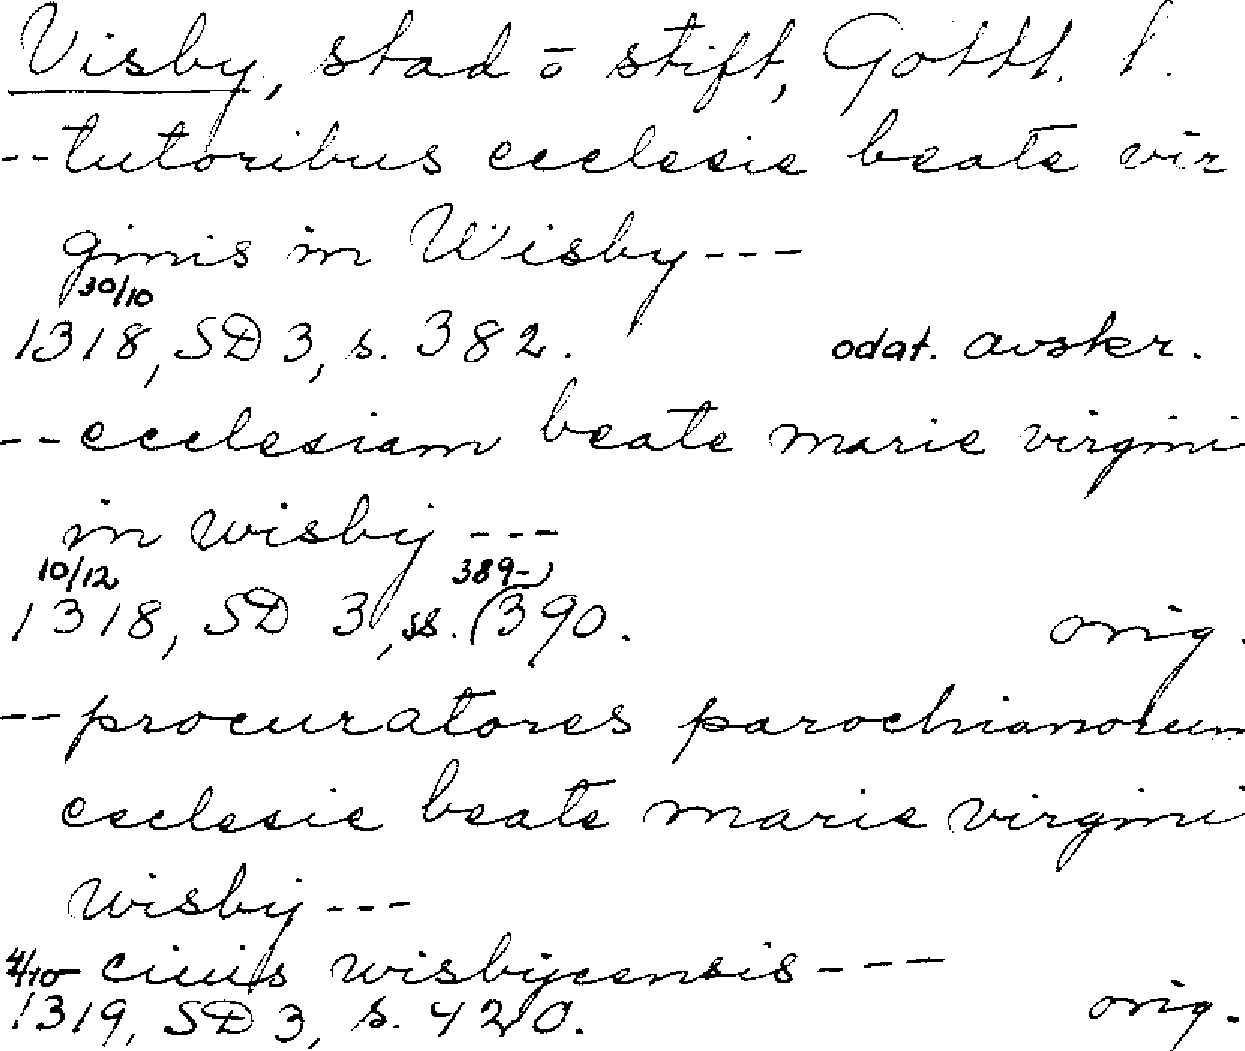 Visby, stad o stift, Gottl. l.
--tutoribus ecclesie beate vir
ginis in Wisby---
30/10
1318, SD 3, s. 382. odat. avskr.
--ecclesiam beate marie virgini
in wisby---
10/12 389-
1318, SD 3, ss. (390. orig.
--procuratores parochianorum
ecclesie beate marie virgini
wisby---
4/10 ciuis wisbycensis---
1319, SD 3, s. 420. orig.